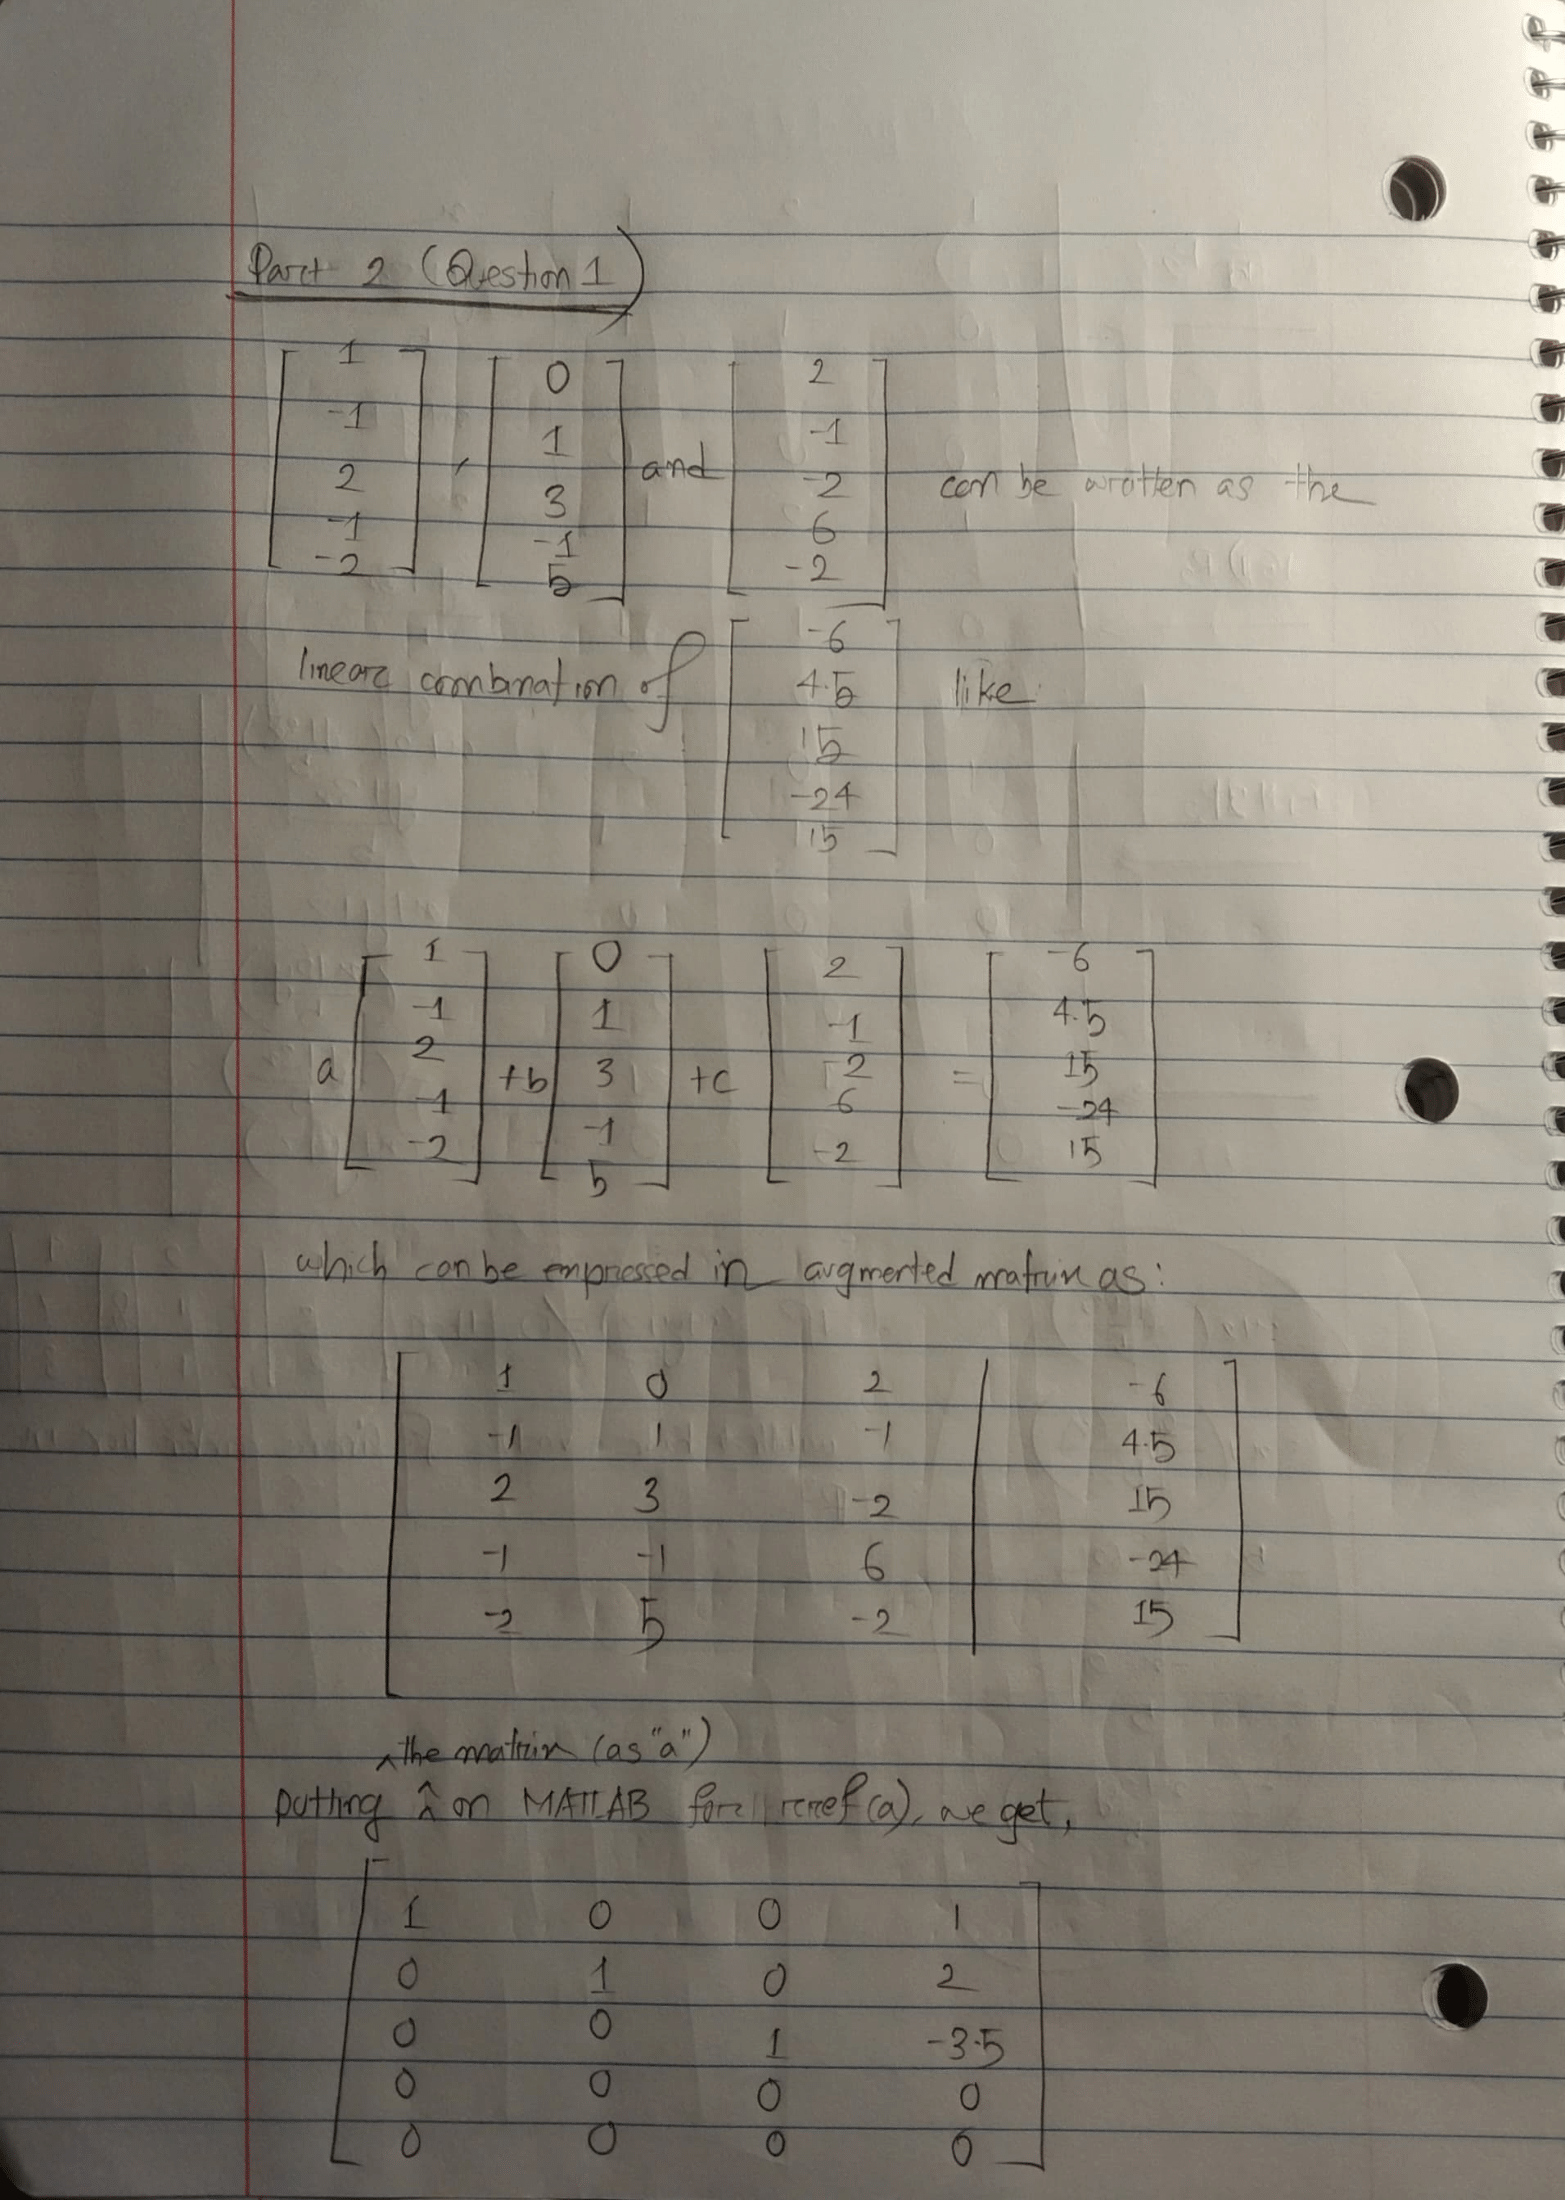 Part 2 (Question 1)
[1 -1 2 -1 -2] , [0 1 3 -1 5] and [2 -1 -2 6 -2] can be written as the
linear combination of [-6 4.5 15 -24 15] like
a [1 -1 2 -1 -2] +b [0 1 3 -1 5] +c [2 -1 -2 6 -2] = [-6 4.5 15 -24 15]
which can be expressed in augmented matrix as:
1 0 2 | -6
-1 1 -1 | 4.5
2 3 -2 | 15
-1 -1 6 | -24
-2 5 -2 | 15
the matrix (as "a")
putting ^ on MATLAB for rref(a), we get,
1 0 0 1
0 1 0 2
0 0 1 -3.5
0 0 0 0
0 0 0 0